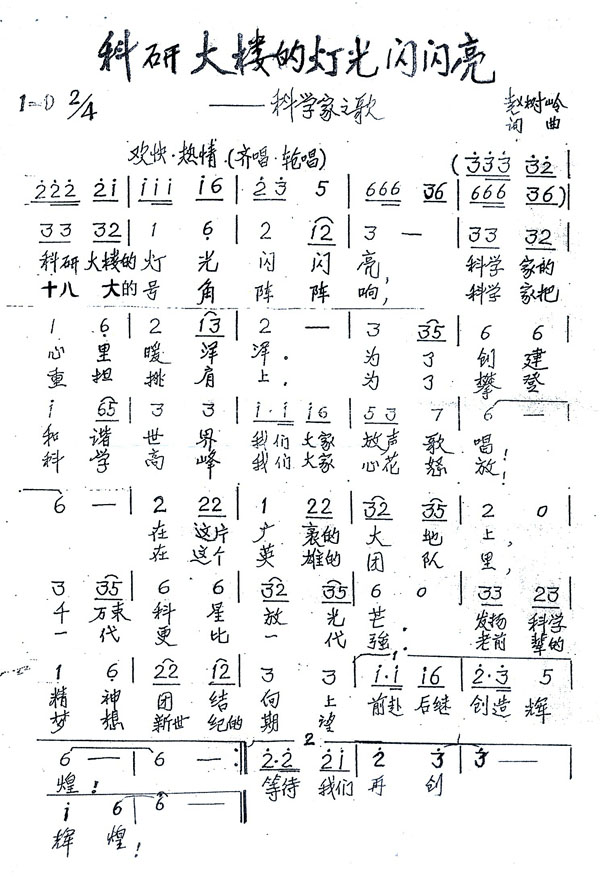 科研大楼的灯光闪闪亮
1=D 2/4 ——科学家之歌 赵树岭
词 曲
欢快·热情·(齐唱·轮唱) (3 3 3 3 2 |
2 2 2 2 1 | 1 1 1 1 6 | 2 3 5 | 6 6 6 3 6 | 6 6 6 3 6 )
3 3 3 2 | 1 6 | 2 1 2 | 3 — | 3 3 3 2 |
科研 大楼的 灯 光 闪 闪 亮, 科学 家的
十八 大的 号 角 阵 阵 响, 科学 家把
1 6 | 2 1 3 | 2 — | 3 3 5 | 6 6 |
心 里 暖 洋 洋. 为 了 创 建
重 担 挑 肩 上. 为 了 攀 登
1 6 5 | 3 3 | 1 · 1 1 6 | 5 3 7 | 6 — |
和 谐 世 界 我们 大家 放声 歌 唱!
科 学 高 峰 我们 大家 心花 怒 放!
6 — | 2 2 2 | 1 2 2 | 3 2 3 5 | 2 0 |
在 这片 广 袤的 大 地 上,
在 这个 英 雄的 团 队 里,
3 3 5 | 6 6 | 3 2 3 5 | 6 0 | 3 3 2 3 |
千 万束 科 星 放 光 芒. 发扬 科学
一 代 更 比 一 代 强. 老前 辈的
1 6 | 2 2 1 2 | 3 3 | 1 · 1 1 6 | 2 · 3 5 |
精 神 团 结 向 上 前赴 后继 创造 辉
梦 想 新世 纪的 期 望
6 — | 6 — :| 2 2 · 2 2 1 | 2 3 | 3 — |
煌! 等待 我们 再 创
1 6 | 6 — |
辉 煌!